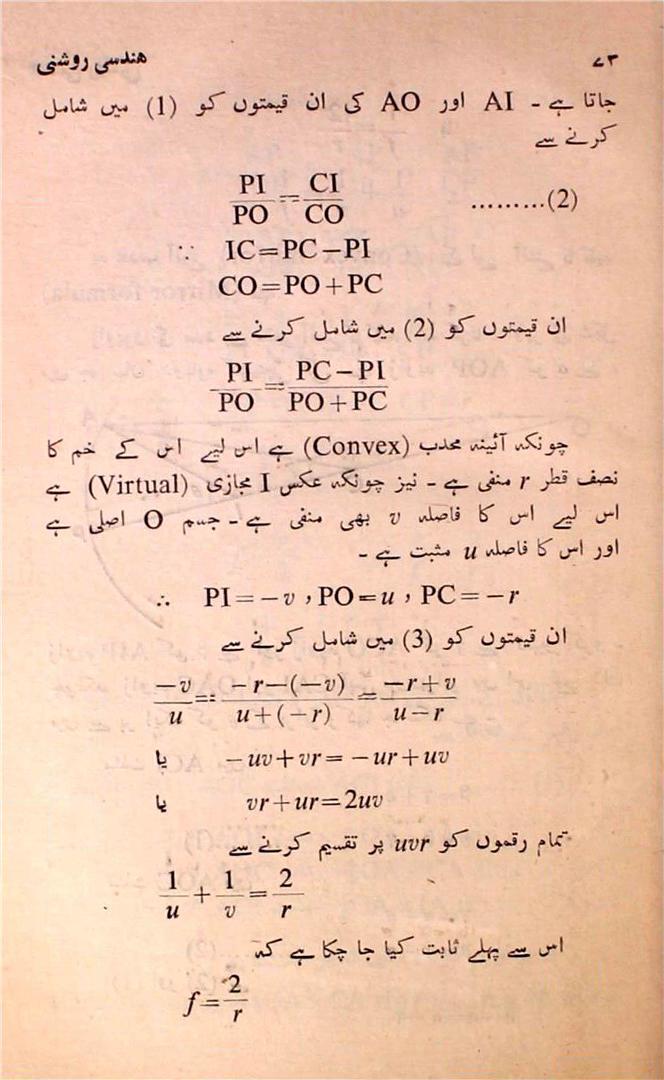 ۷۳ هندسی روشنی
جاتا ہے ـ AI اور AO کی ان قیمتوں کو (1) میں شامل
کرنے سے
PI/PO = CI/CO .........(2)
∵ IC=PC−PI
CO=PO+PC
ان قیمتوں کو (2) میں شامل کرنے سے
PI/PO = PC−PI/PO+PC
چونکہ آئینہ محدب (Convex) ہے اس لیے اس کے خم کا
نصف قطر r منفی ہے ـ نیز چونکہ عکس I مجازی (Virtual) ہے
اس لیے اس کا فاصلہ v بھی منفی ہے ـ جسم O اصلی ہے
اور اس کا فاصلہ u مثبت ہے ـ
∴ PI=−v , PO=u , PC=−r
ان قیمتوں کو (3) میں شامل کرنے سے
−v/u = −r−(−v)/u+(−r) = −r+v/u−r
یا −uv+vr= −ur+uv
یا vr+ur=2uv
تمام رقموں کو uvr پر تقسیم کرنے سے
1/u + 1/v = 2/r
اس سے پہلے ثابت کیا جا چکا ہے کہ
f= 2/r